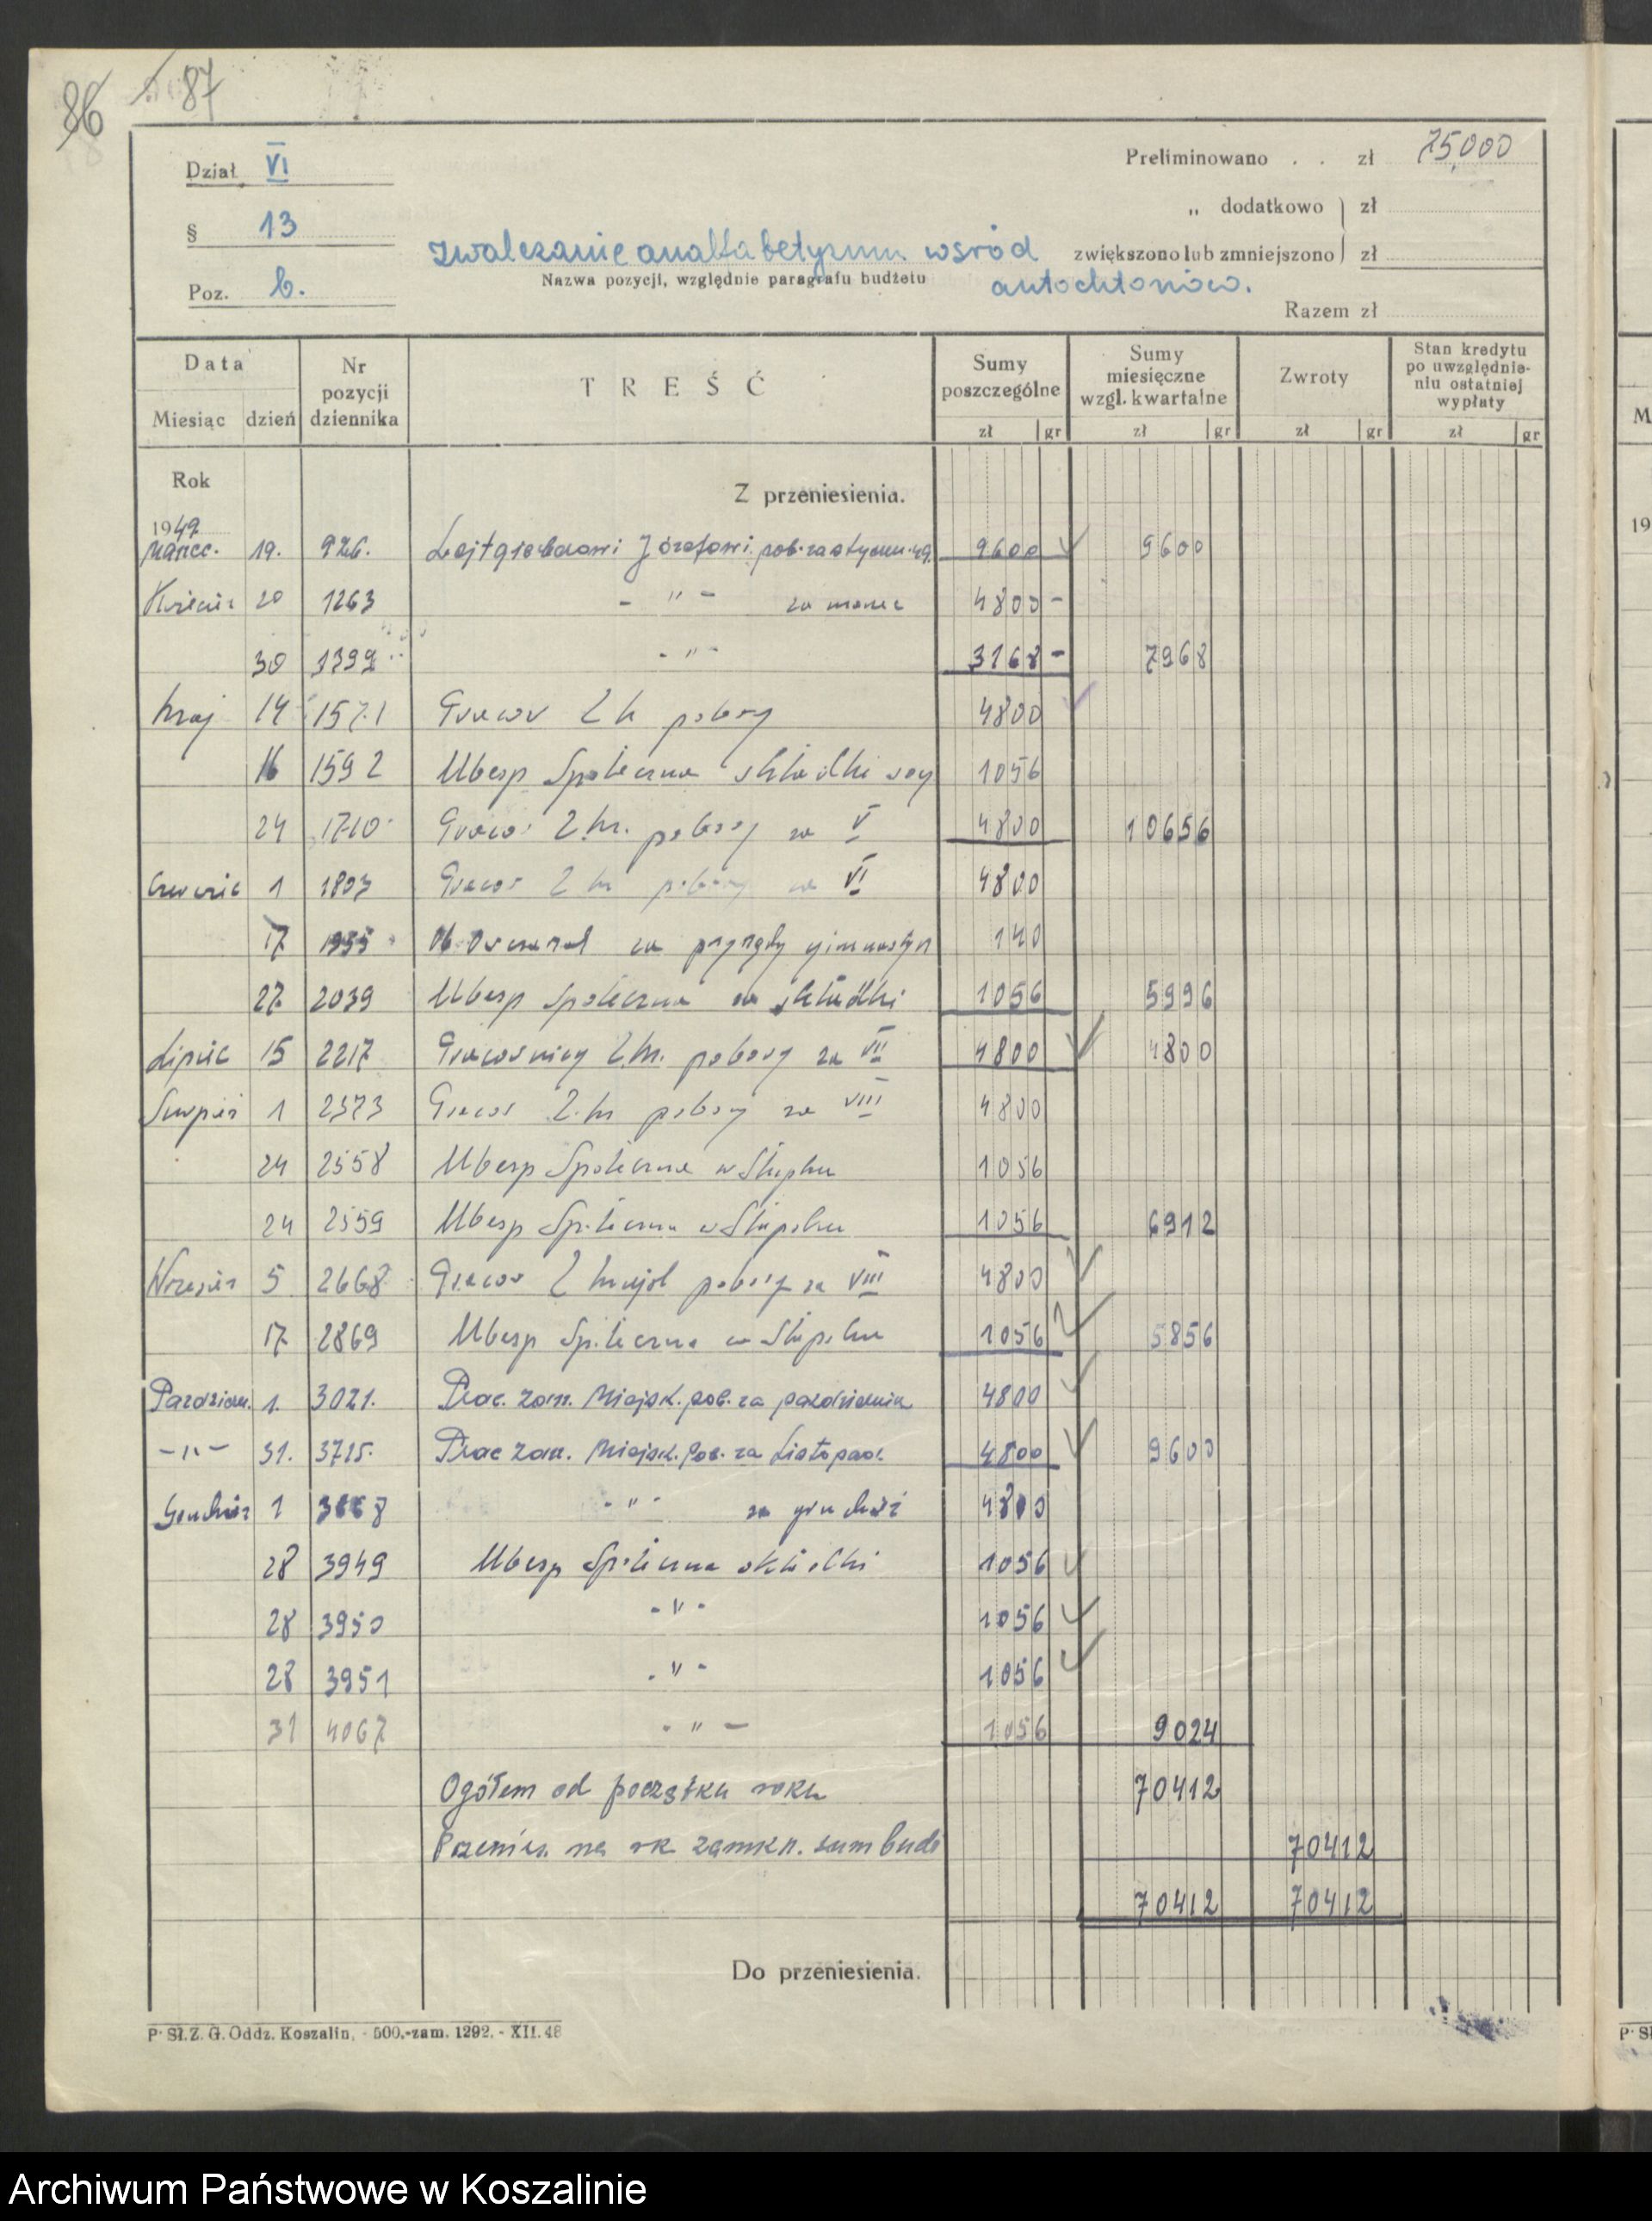 86 87
Dział VI
Preliminowano . . zł 75,000
„ dodatkowo zł
§ 13
zwalczanie analfabetyzmu wśród
zwiększono lub zmniejszono zł
Nazwa pozycji, względnie paragrafu budżetu
autochtonów.
Poz. b.
Razem zł
Data Miesiąc dzień
Nr pozycji dziennika
TREŚĆ
Sumy poszczególne zł gr
Sumy miesięczne wzgl. kwartalne zł gr
Zwroty zł gr
Stan kredytu po uwzględnie- niu ostatniej wypłaty zł gr
Rok
Z przeniesienia.
1949
Marzec. 19. 926. Józefowi pob. za 9600 9600
20 1263 - " - za marzec 4800 -
30 1399 - " - 3168 - 7968
Maj 14 1571 pobory 4800
16 1592 Ubezp Społeczna składki 1056
24 1710 pobory za V 4800 10656
1 1803 pobory za VI 4800
17 1955 za przyrządy gimnastyn 140
27 2039 Ubezp Społeczna za składki 1056 5996
Lipiec 15 2217 pobory za VII 4800 4800
Sierpień 1 2373 pobory za VIII 4800
24 2558 Ubezp Społeczna w Słupsku 1056
24 2559 Ubezp Społeczna w Słupsku 1056 6912
Wrzesień 5 2668 pobory za VIII 4800
17 2869 Ubezp Społeczna w Słupsku 1056 5856
1. 3021. Prac. Zarz. Miejsk. pob. za październik 4800
- " - 31. 3715. Prac Zarz. Miejsk. Pob. za Listopad. 4800 9600
Grudzień 1 - " - za grudzień 4800
28 3949 Ubezp Społeczna składki 1056
28 3950 - " - 1056
28 3951 - " - 1056
31 4067 - " - 1056 9024
Ogółem od początku roku 70412
Przenies. na rk zamkn. sum budż 70412
70412 70412
Do przeniesienia.
P. Sł. Z. G. Oddz. Koszalin, - 500,-zam. 1292. - XII. 48
Archiwum Państwowe w Koszalinie